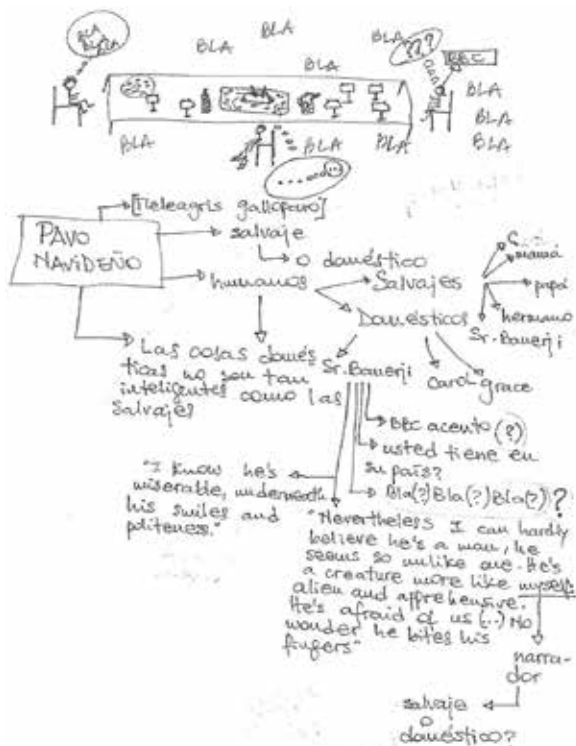 BLA
BLA
BLA
BLA
BLA
BLA
???
BBC
BLA
BLA
BLA
BLA
BLA
BLA
[Meleagris gallopavo]
PAVO
NAVIDEÑO
salvaje
o doméstico
humanos
Salvajes
mamá
papá
hermano
Sr. Banerji
Domésticos
Las cosas domés
ticas no son tan
inteligentes como las
salvajes
Sr. Banerji
Carol
grace
BBC acento (?)
usted tiene en
su país?
Bla(?) Bla(?) Bla(?) ?
"I know he's
miserable, underneath
his smiles and
politeness."
"Nevertheless I can hardly
believe he's a man, he
seems so unlike one. He's
a creature more like myself:
alien and apprehensive.
He's afraid of us (...) No
wonder he bites his
fingers"
narra-
dor
salvaje
o
doméstico?